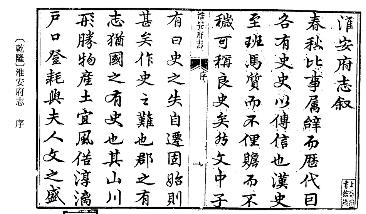 淮安府志叙
春秋比事属辭而歷代因
各有史史以傳信也漢史
至班馬質而不俚贍而不
穢可稱良史矣然文中子
淮安府志
序
有曰史之失自遷固始則
甚矣作史之難也郡之有
志猶國之有史也其山川
形勝物産土宜風俗淳漓
户口登耗與夫人文之盛
〔乾隆〕淮安府志 序